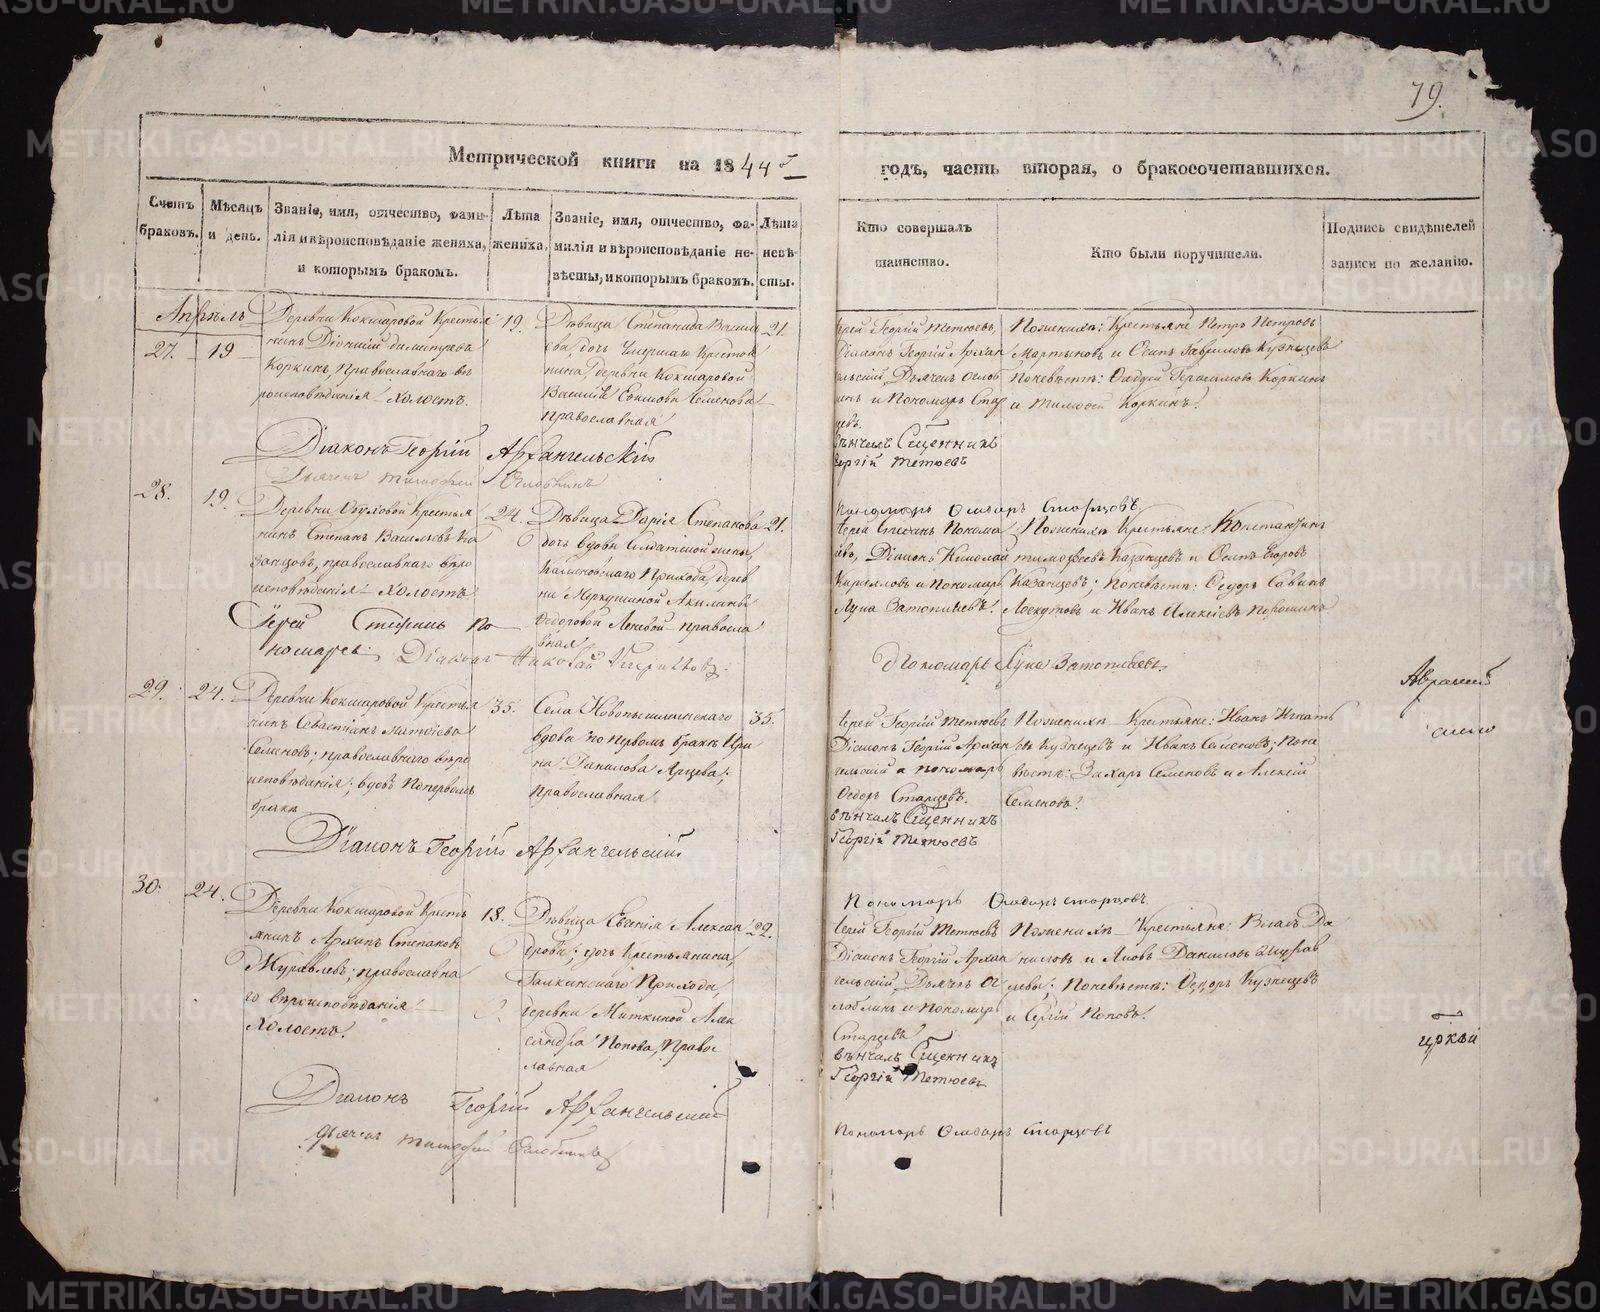 79.
Метрической книги на 1844й годъ, часть вторая, о бракосочетавшихся.
Счетъ браковъ.
Мѣсяцъ и день.
Званіе, имя, отчество, фамилія и вѣроисповѣданіе жениха, и которымъ бракомъ.
Лѣта жениха.
Званіе, имя, отчество, фамилія и вѣроисповѣданіе невѣсты, и которымъ бракомъ.
Лѣта невѣсты.
Кто совершалъ таинство.
Кто были поручители.
Подпись свидѣтелей записи по желанію.
Апрѣль
27. 19
Деревни Кокшаровой Крестья
нинъ Діонисій Димитревъ
Коркинъ, Православнаго вѣ
роисповѣданія Холостъ.
19.
Дѣвица Степанида Василь
ева, дочь Умершаго Крестья
нина, деревни Кокшаровой
Василія Семенова
православная
21.
Іерей Георгій Тетюевъ,
Діаконъ Георгій Архан
гельскій, Дьячекъ
и Пономарь Стар
цевъ.
вѣнчалъ Сщенникъ
Георгій Тетюевъ
По женихѣ: Крестьяне Петръ Петровъ
Мартыновъ и Осипъ Гавриловъ Кузнецовъ
По невѣстѣ: Герасимовъ Коркинъ
и Тимофей Коркинъ.
Діаконъ Георгій Архангельскій
Дьячекъ Тимофей
Пономарь Ѳеодоръ Старцовъ
28. 19.
Деревни Крестья
нинъ Степанъ Васильевъ Ка
занцовъ, православнаго вѣро
исповѣданія Холостъ
24.
Дѣвица Дарія Степанова
дочь вдовы Солдатской жены
Прихода, дерев
ни Меркушиной Акилины
Ѳедоровой православ
вная
21.
Іерей Стефанъ Понома
ревъ, Діаконъ Николай
Кирилловъ и пономарь
Лука Затопляевъ.
По женихѣ Крестьяне: Константинъ
Тимофеевъ Казанцевъ и Осипъ Егоровъ
Казанцевъ; По невѣстѣ: Ѳедоръ Савинъ
Лоскутовъ и Иванъ Алексѣевъ Порошинъ
Іерей Стефанъ По
номаревъ. Діаконъ Николай Кирилловъ
Пономарь Лука Затопляевъ
29. 24.
Деревни Кокшаровой Крестья
нинъ Севастіанъ Матвѣевъ
Семеновъ; православнаго вѣро
исповѣданія; вдовъ По первомъ
бракѣ
35.
Села Новопышминскаго
вдова по первомъ бракѣ Ири
на Данилова Арцева;
православная
35.
Іерей Георгій Тетюевъ
Діаконъ Георгій Архан
гельскій и пономарь
Ѳедоръ Старцевъ.
вѣнчалъ Сщенникъ
Георгій Тетюевъ
По женихѣ Крестьяне: Иванъ Игнать
евъ Кузнецевъ и Иванъ Семеновъ; По не
вѣстѣ: Захаръ Семеновъ и Алексій
Семеновъ.
Діаконъ Георгій Архангельскій
Пономарь Ѳеодоръ Старцовъ
30. 24.
Деревни Кокшаровой Кресть
янинъ Архипъ Степановъ
Журавлевъ; православна
го вѣроисповѣданія
Холостъ.
18.
Дѣвица Евгенія Алексан
дрова; дочь Крестьянина,
Прихода
деревни Миткиной Алек
сандра Попова, Право
славная
22.
Іерей Георгій Тетюевъ
Діаконъ Георгій Архан
гельскій, Дьячекъ
и Пономарь
Старцевъ
вѣнчалъ Сщенникъ
Георгій Тетюевъ
По женихѣ Крестьяне: Власъ Да
ниловъ и Яковъ Даниловъ Журав
левы; По невѣстѣ: Ѳедоръ Кузнецевъ
и Сергій Поповъ.
Діаконъ Георгій Архангельскій
дьячекъ Тимофей
Пономарь Ѳеодоръ Старцовъ
церкви
METRIKI.GASO-URAL.RU